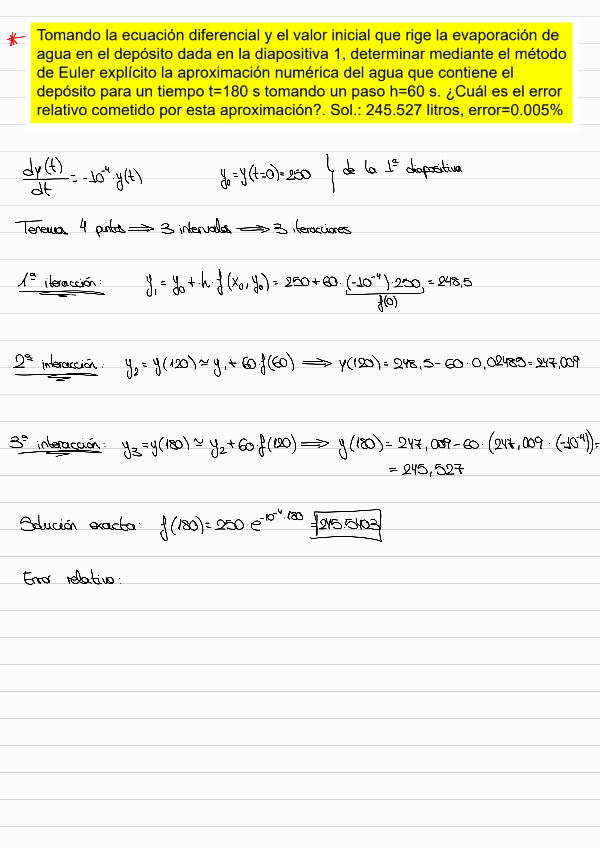 * Tomando la ecuación diferencial y el valor inicial que rige la evaporación de
agua en el depósito dada en la diapositiva 1, determinar mediante el método
de Euler explícito la aproximación numérica del agua que contiene el
depósito para un tiempo t=180 s tomando un paso h=60 s. ¿Cuál es el error
relativo cometido por esta aproximación?. Sol.: 245.527 litros, error=0.005%
dy(t)/dt = -10⁻⁴·y(t) y₀=y(t=0)=250 } de la 1ª diapositiva
Tenemos 4 puntos ⟹ 3 intervalos ⟹ 3 iteracciones
1ª iteracción: y₁ = y₀ + h·f(x₀, y₀) = 250+60·(-10⁻⁴)·250 = 248,5
f(0)
2ª interacción: y₂ = y(120) ≃ y₁ + 60·f(60) ⟹ y(120) = 248,5-60·0,02485 = 247,009
3ª interacción: y₃=y(180) ≃ y₂+60·f(120) ⟹ y(180) = 247,009-60·(247,009·(-10⁻⁴))=
= 245,527
Solución exacta: f(180)=250·e^-10⁻⁴·180 =
Error relativo: